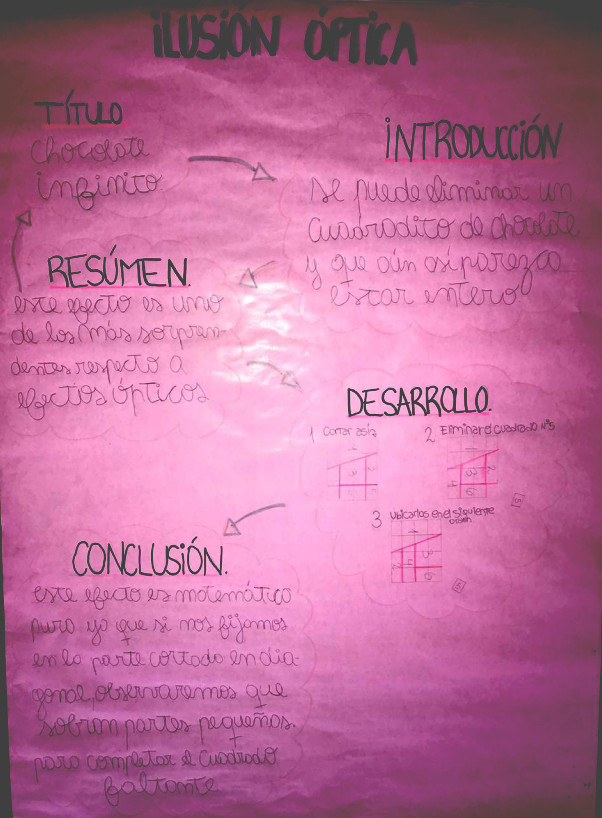 iLUSIÓN ÓPTICA
TÍTULO
chocolate
infinito
iNTRODUCCIÓN
se puede eliminar un
cuadradito de chocolate
y que aún asi parezca
estar entero
RESÚMEN.
este efecto es uno
de los más sorpren-
dentes respecto a
efectos ópticos
DESARROLLO.
1 Cortar así
2 Eliminar el cuadrado n°5
3 Ubicarlos en el siguiente
orden
CONCLUSiÓN.
este efecto es matemático
puro ya que si nos fijamos
en la parte cortada en dia-
gonal, observaremos que
sobran partes pequeñas.
para completar el cuadrado
faltante